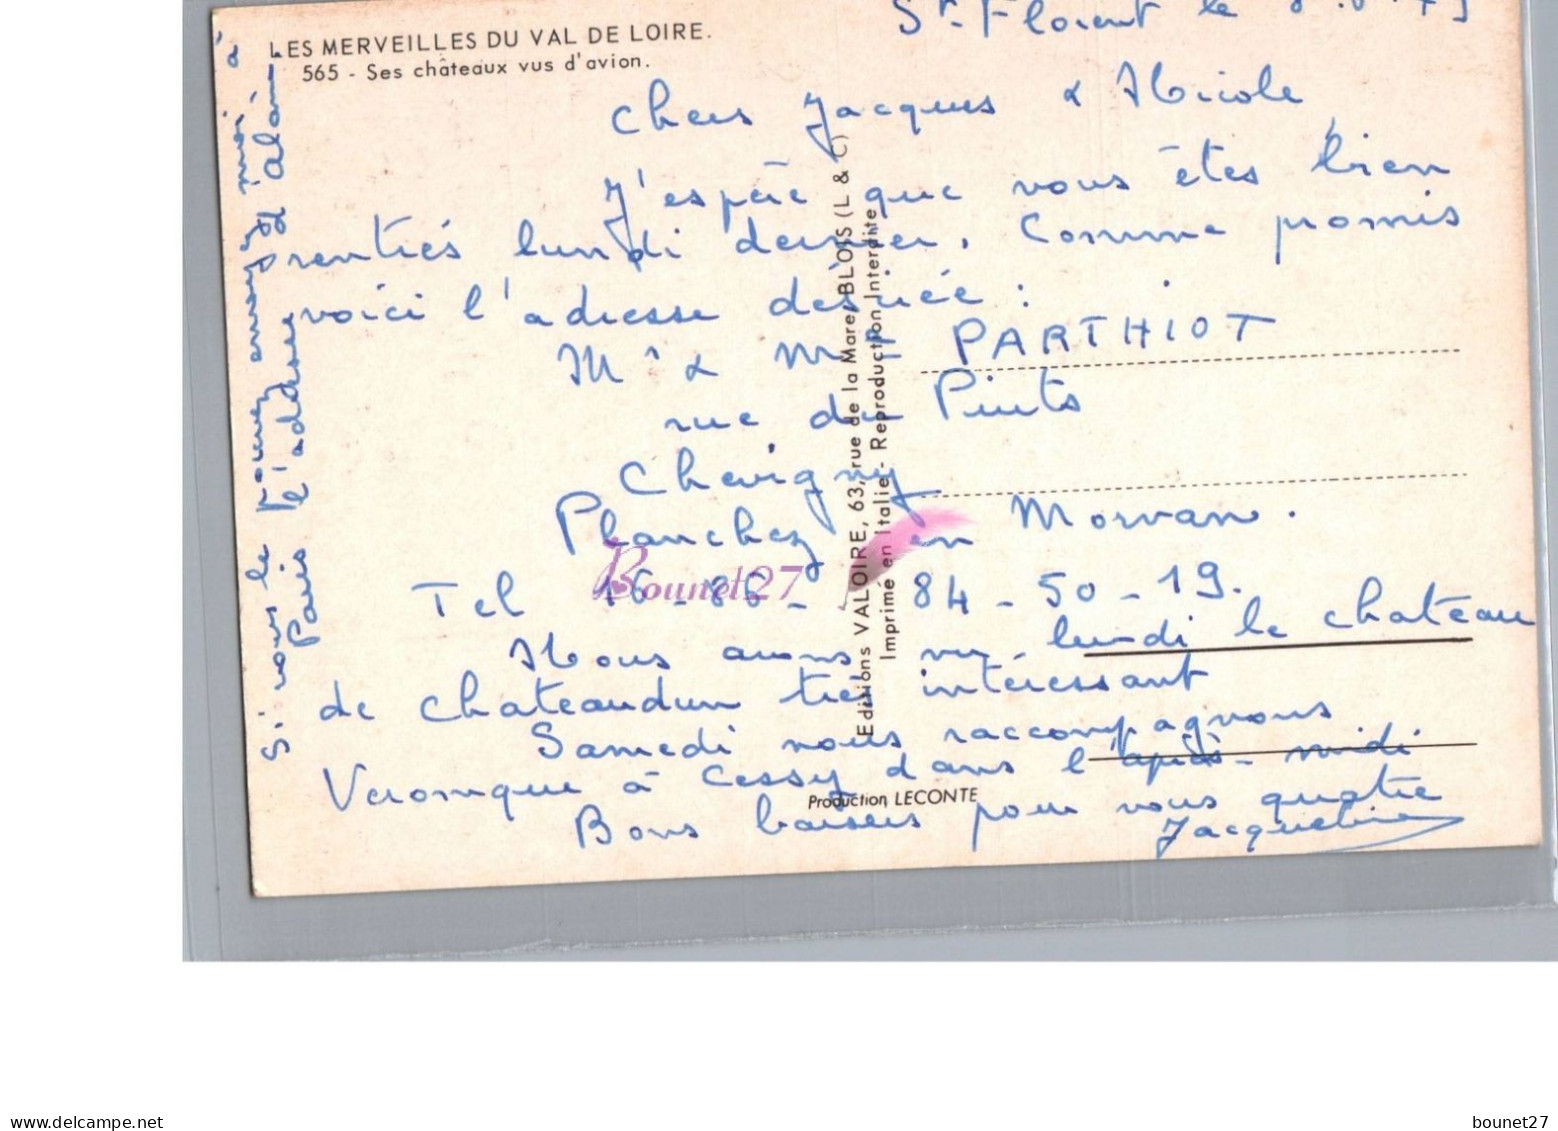 LES MERVEILLES DU VAL DE LOIRE.
565 - Ses châteaux vus d'avion.
St Florent le
Chers Jacques & Nicole
J'espère que vous êtes bien
rentrés lundi dernier. Comme promis
voici l'adresse désirée :
Mr & Me PARTHIOT
rue du Puits
Chevigny
Planchez en Morvan.
Tel 16-86- 84-50-19.
Nous avons vu lundi le chateau
de Chateaudun très intéressant
Samedi nous raccompagnons
Veronique à Cessy dans l'après-midi
Bons baisers pour vous quatre
Jacqueline
Si vous le pouvez envoyez moi à
Paris l'adresse d'Alain
Editions VALOIRE, 63, rue de la Mare, BLOIS (L & C)
Imprimé en Italie - Reproduction Interdite
Production LECONTE
Bounet27
www.delcampe.net
bounet27